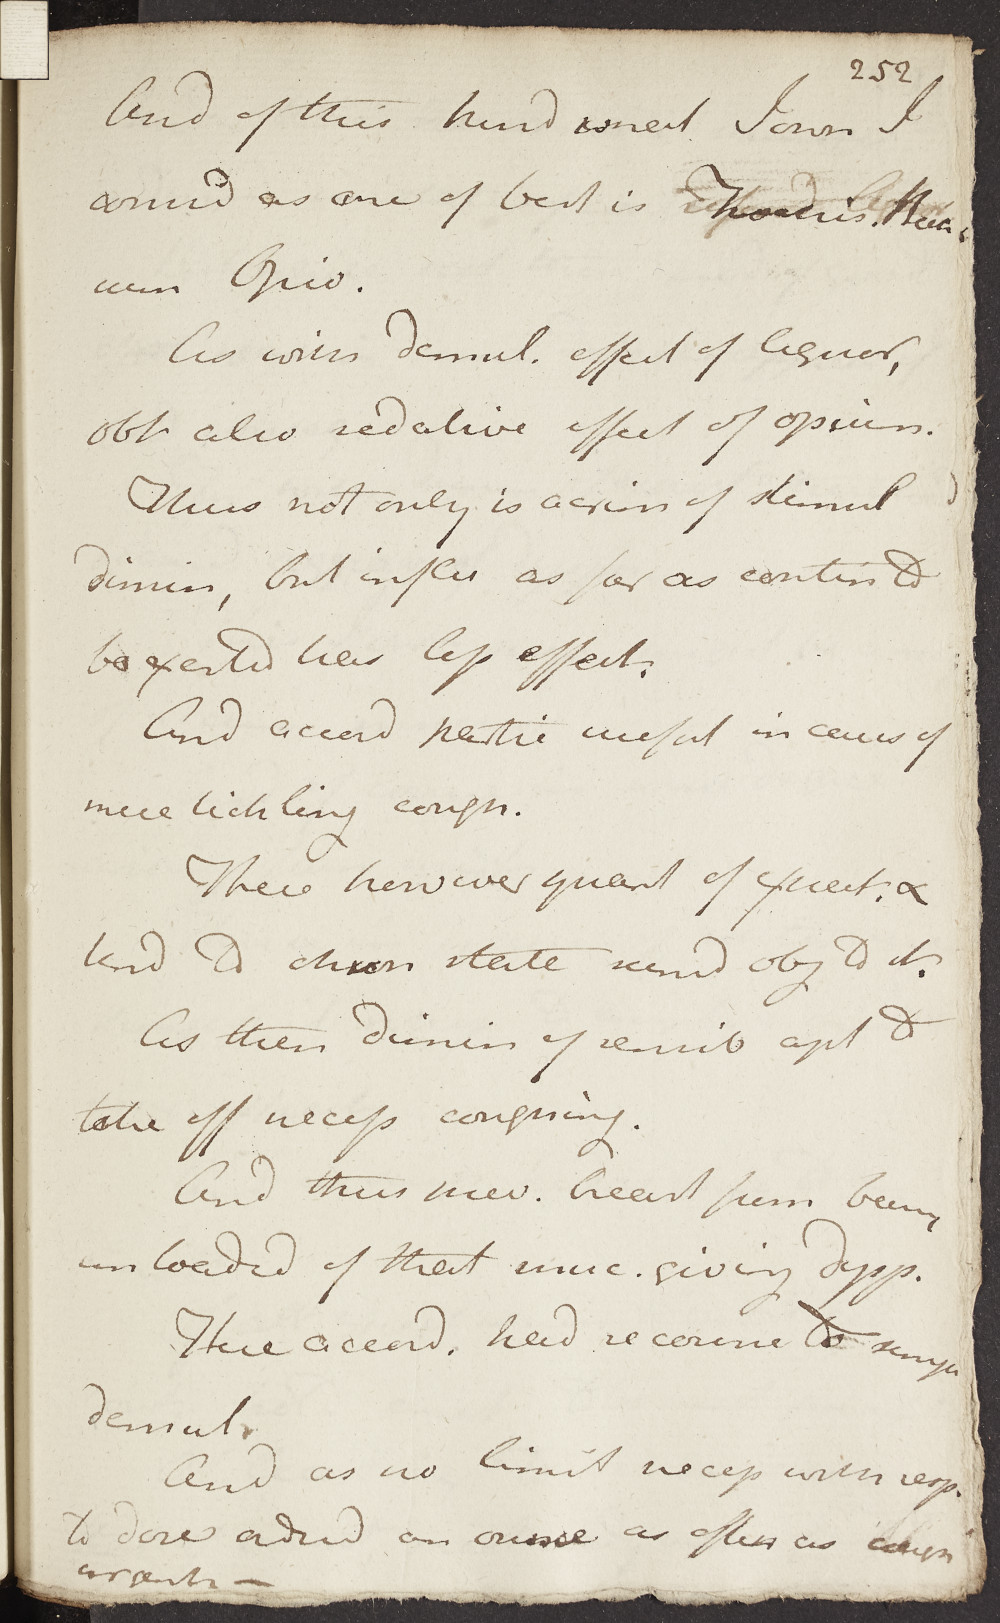 252
And of this kind what I own I
consid as one of best is Trochis. Glu
cum Opio.
As with demul. effect of liquor,
obt also sedative effect of opium.
Thus not only is acrim of stimul
dimin, but influ as far as contin to
be exerted has less effect.
And accord partic useful in cases of
mere tickling cough.
There however quant of expect. &
tend to chron state rend obj to it.
As then dimin of sensib apt to
take off necess coughing.
And thus prev. breast from being
unloaded of that muc. giving dysp.
Here accord. had recourse to simple
demul.
And as no limit necess with resp.
to dose ordered an ounce as often as cough
urgent —